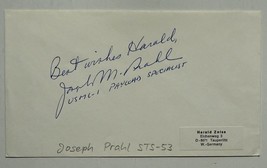 Best wishes Harald,
Joseph M. Prahl
USML-1 PAYLOAD SPECIALIST
Harald Zeiss
W-Germany
Joseph Prahl STS-53